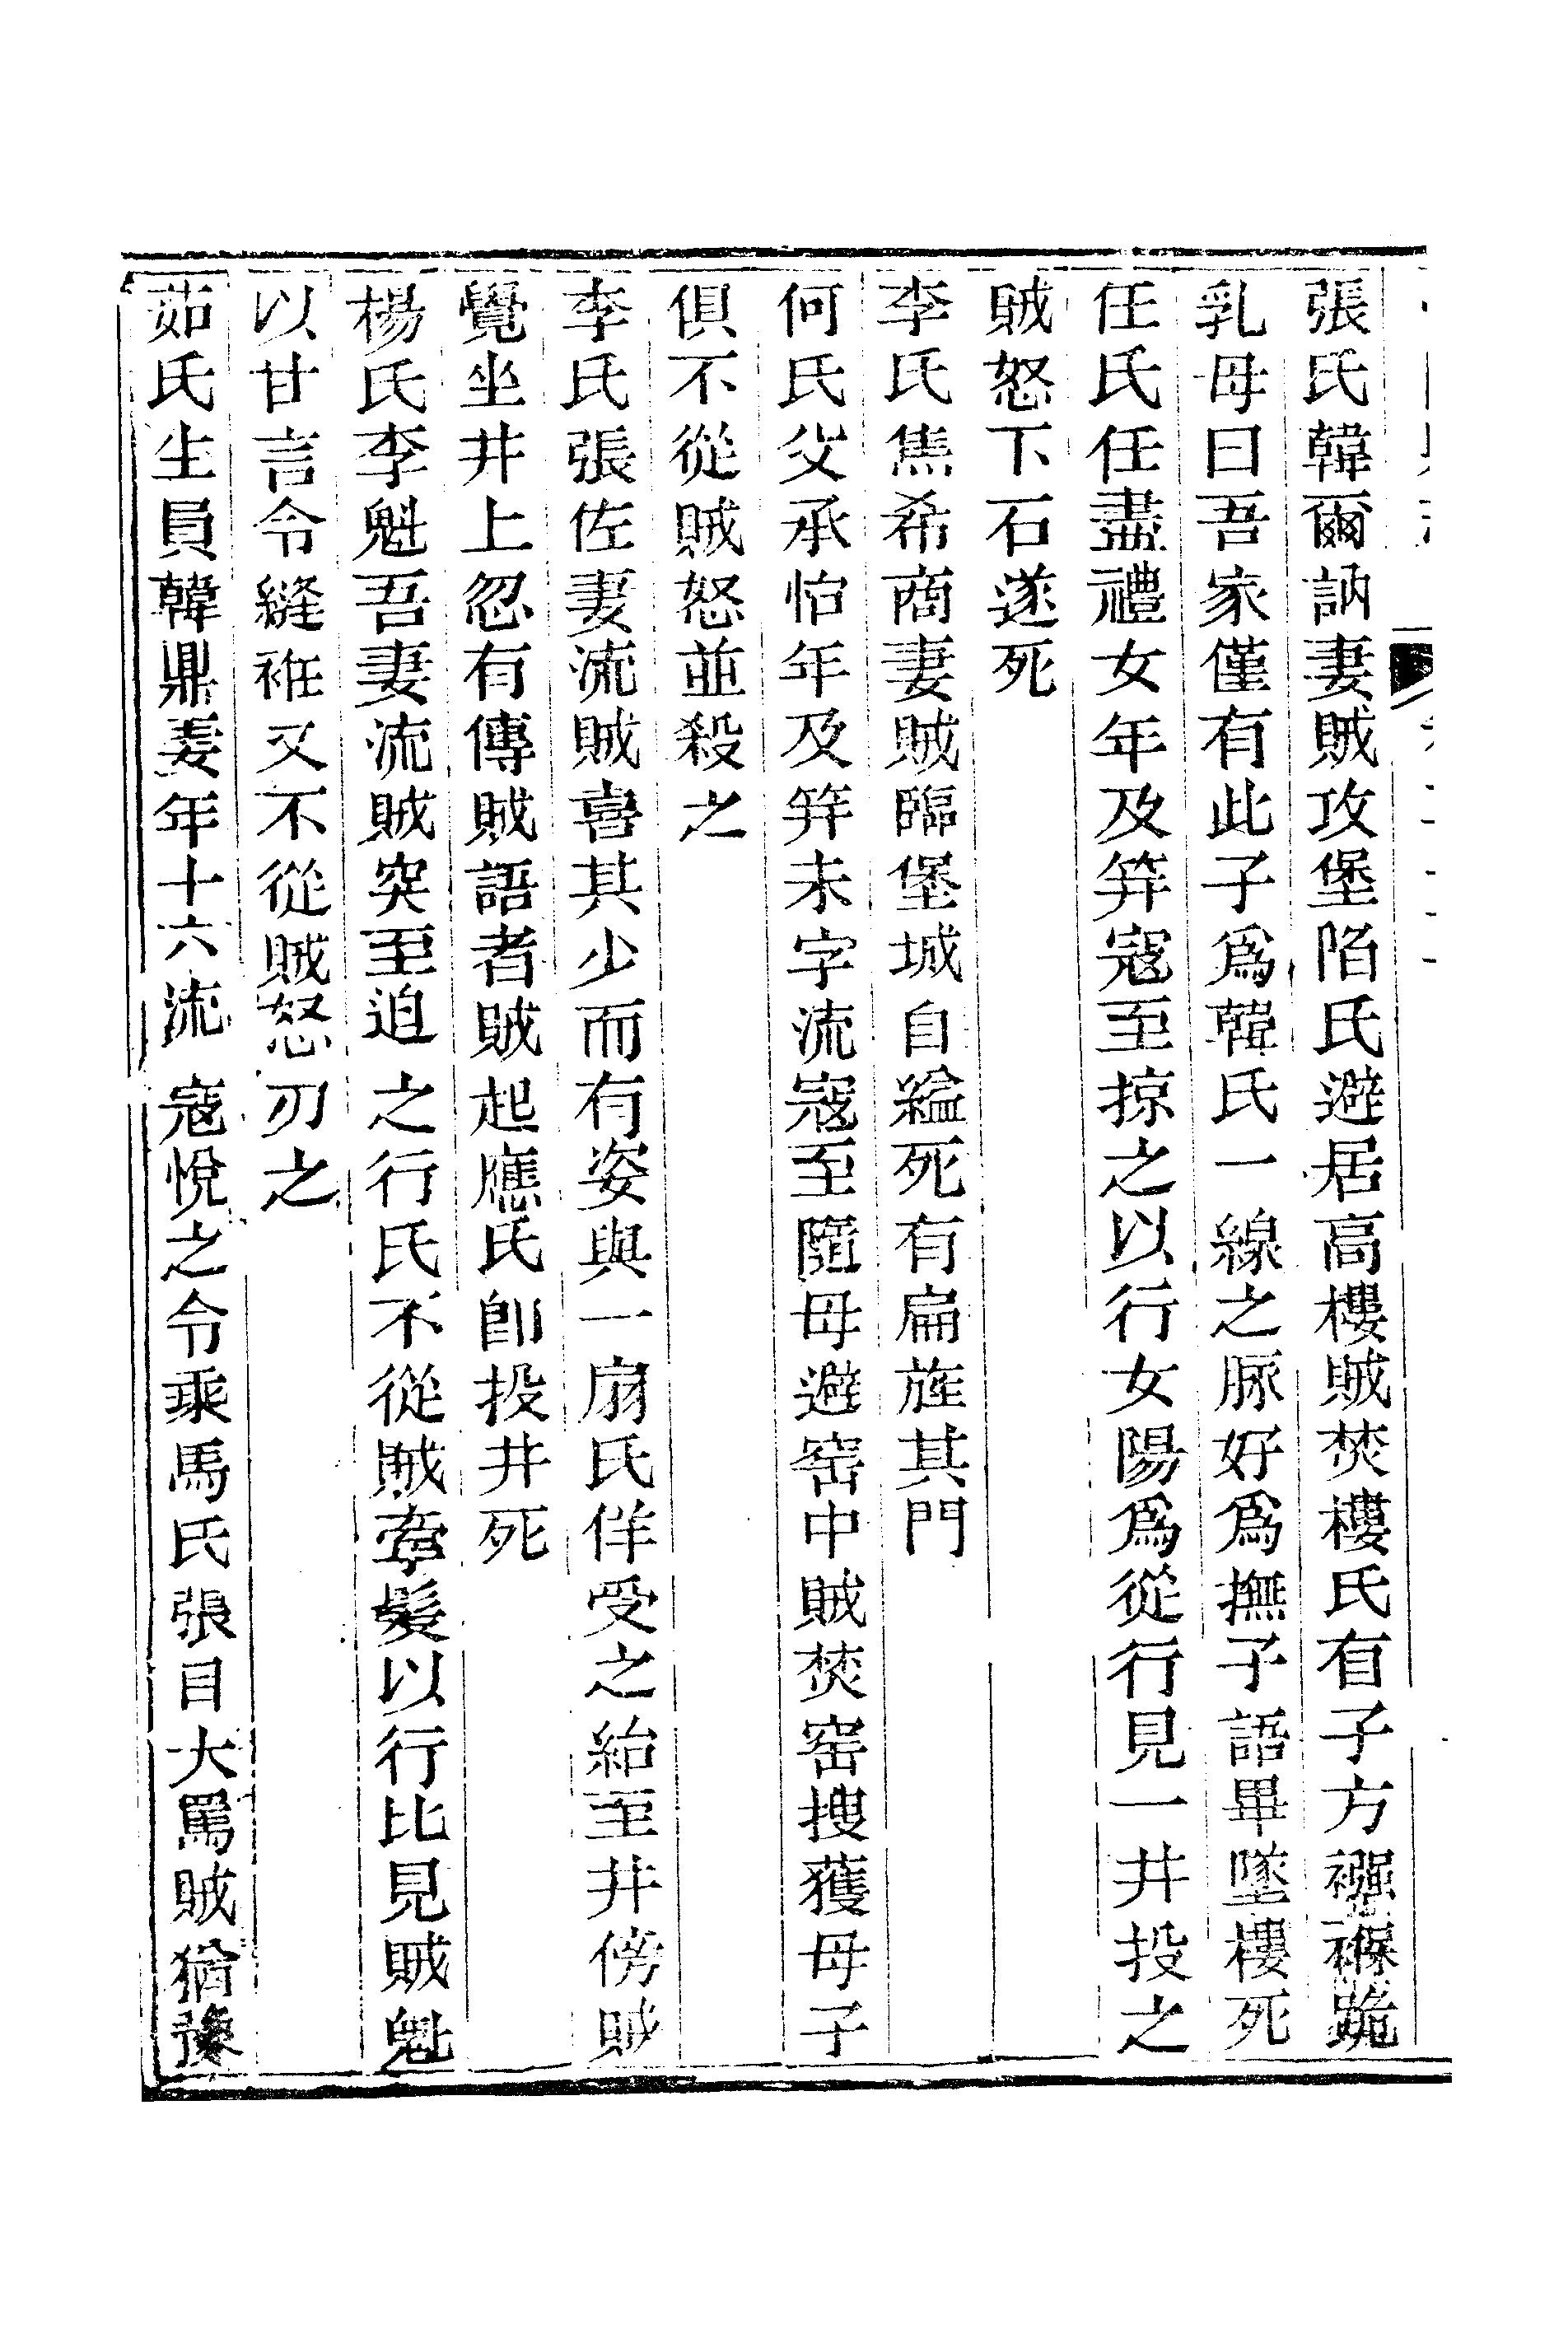 張氏韓爾訥妻賊攻堡陷氏避居高樓賊焚樓氏有子方襁褓跪
乳母曰吾家僅有此子爲韓氏一線之脈好爲撫子語畢墜樓死
任氏任盡禮女年及笄寇至掠之以行女陽爲從行見一井投之
賊怒下石遂死
李氏焦希商妻賊臨堡城自縊死有扁旌其門
何氏父承怡年及笄未字流寇至隨母避窑中賊焚窑搜獲母子
俱不從賊怒並殺之
李氏張佐妻流賊喜其少而有姿與一扇氏佯受之紿至井傍賊
覺坐井上忽有傳賊語者賊起應氏卽投井死
楊氏李魁吾妻流賊突至迫之行氏不從賊牽髮以行比見賊魁
以甘言令縫袵又不從賊怒刃之
茹氏生員韓鼎妻年十六流寇悅之令乘馬氏張目大罵賊猶豫